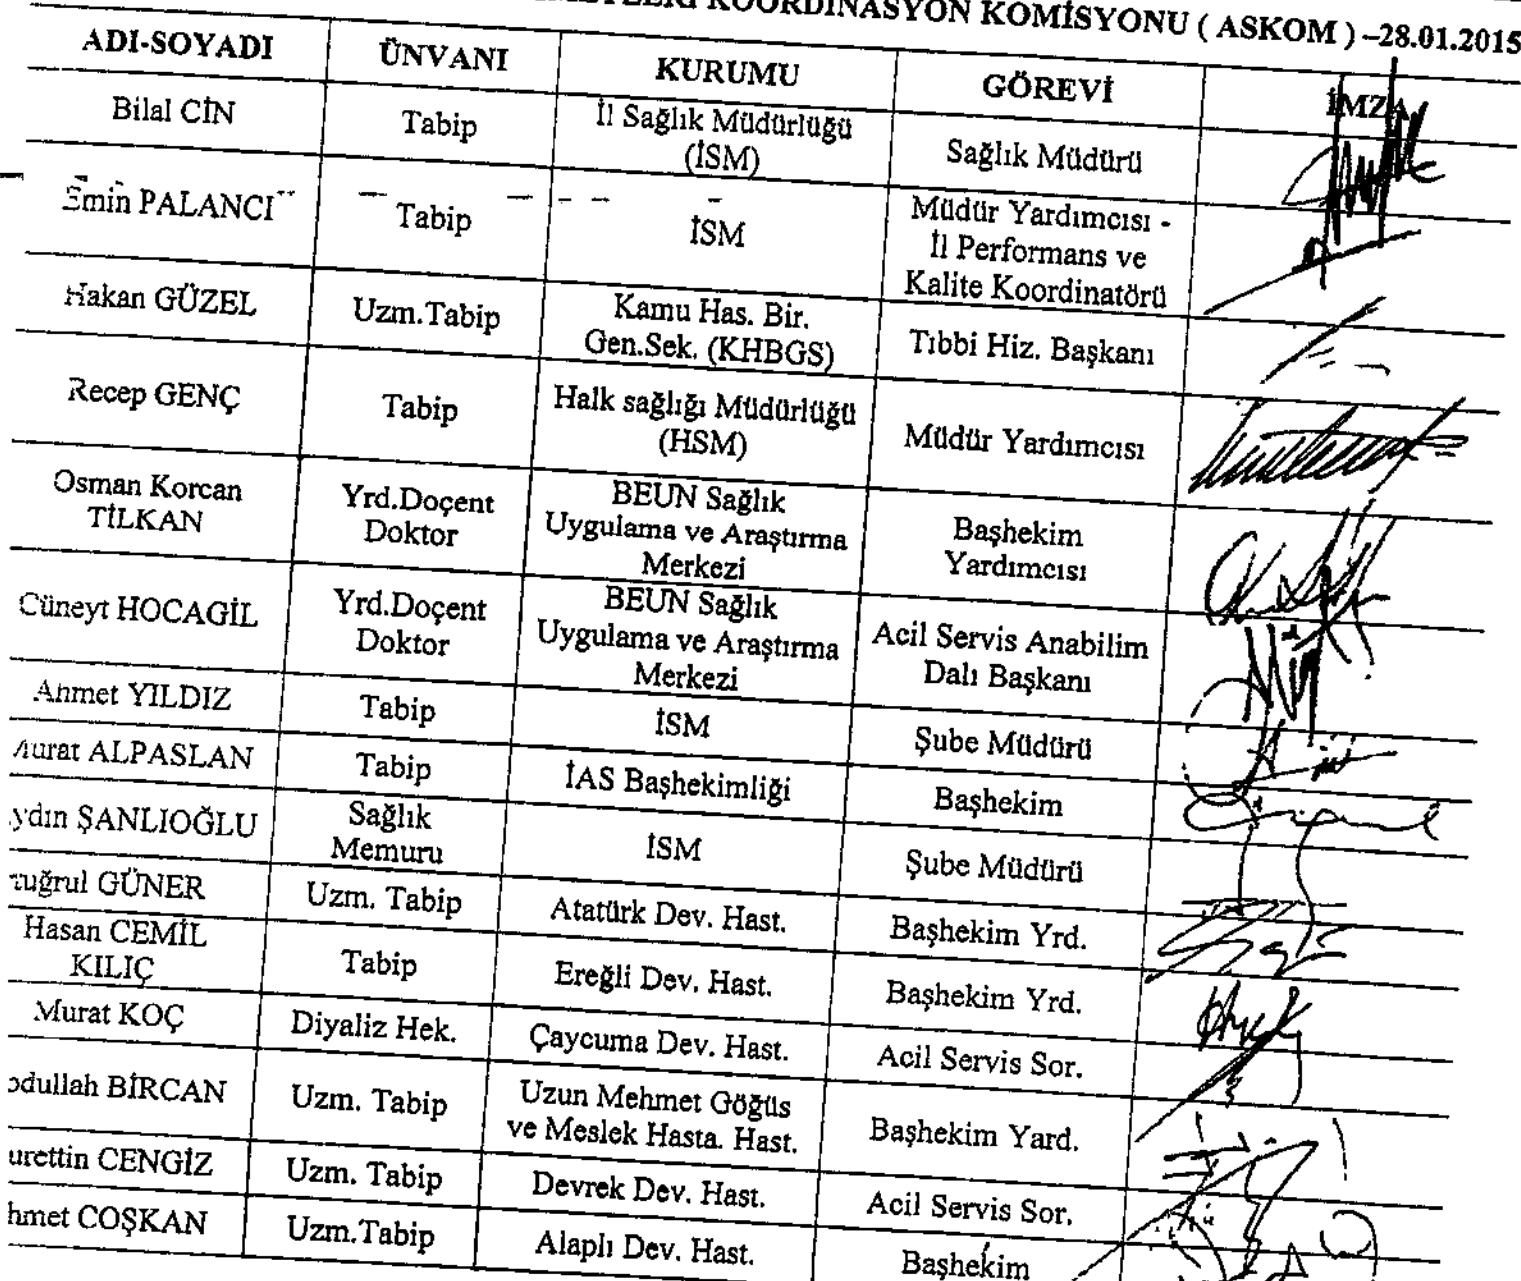 KOORDİNASYON KOMİSYONU ( ASKOM ) –28.01.2015
ADI-SOYADI ÜNVANI KURUMU GÖREVİ İMZA
Bilal CİN Tabip İl Sağlık Müdürlüğü (İSM) Sağlık Müdürü
Emin PALANCI Tabip İSM Müdür Yardımcısı - İl Performans ve Kalite Koordinatörü
Hakan GÜZEL Uzm.Tabip Kamu Has. Bir. Gen.Sek. (KHBGS) Tıbbi Hiz. Başkanı
Recep GENÇ Tabip Halk sağlığı Müdürlüğü (HSM) Müdür Yardımcısı
Osman Korcan TİLKAN Yrd.Doçent Doktor BEUN Sağlık Uygulama ve Araştırma Merkezi Başhekim Yardımcısı
Cüneyt HOCAGİL Yrd.Doçent Doktor BEUN Sağlık Uygulama ve Araştırma Merkezi Acil Servis Anabilim Dalı Başkanı
Ahmet YILDIZ Tabip İSM Şube Müdürü
Murat ALPASLAN Tabip İAS Başhekimliği Başhekim
ydın ŞANLIOĞLU Sağlık Memuru İSM Şube Müdürü
tuğrul GÜNER Uzm. Tabip Atatürk Dev. Hast. Başhekim Yrd.
Hasan CEMİL KILIÇ Tabip Ereğli Dev. Hast. Başhekim Yrd.
Murat KOÇ Diyaliz Hek. Çaycuma Dev. Hast. Acil Servis Sor.
bdullah BİRCAN Uzm. Tabip Uzun Mehmet Göğüs ve Meslek Hasta. Hast. Başhekim Yard.
urettin CENGİZ Uzm. Tabip Devrek Dev. Hast. Acil Servis Sor.
hmet COŞKAN Uzm.Tabip Alaplı Dev. Hast. Başhekim